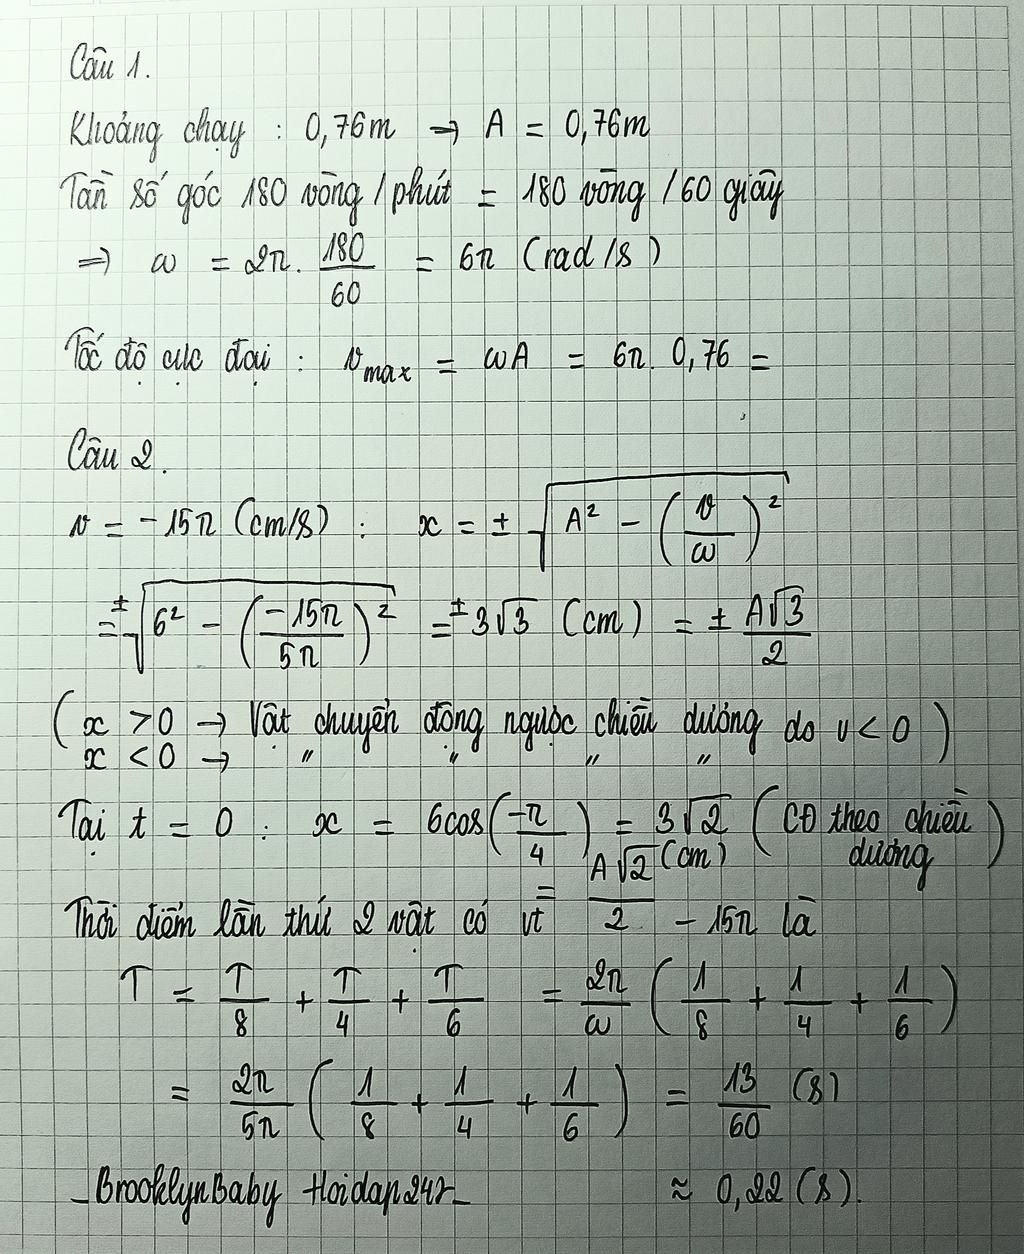 Câu 1.
Khoảng chạy : 0,76m → A = 0,76m
Tần số góc 180 vòng/phút = 180 vòng/60 giây
⇒ ω = 2π. 180/60 = 6π (rad/s)
Tốc độ cực đại : v_max = ωA = 6π. 0,76 =
Câu 2.
v = -15π (cm/s) : x = ± √(A² - (v/ω)²)
= ±√(6² - (-15π/5π)²) = ±3√3 (cm) = ± A√3/2
(x > 0 → Vật chuyển động ngược chiều dương do v < 0)
x < 0 → " " " "
Tại t = 0 : x = 6cos(-π/4) = 3√2 (cm) = A√2/2 (CĐ theo chiều dương)
Thời điểm lần thứ 2 vật có vt - 15π là
T = T/8 + T/4 + T/6 = 2π/ω (1/8 + 1/4 + 1/6)
= 2π/5π (1/8 + 1/4 + 1/6) = 13/60 (s)
_BrooklynBaby Hoidap247_ ≈ 0,22 (s).